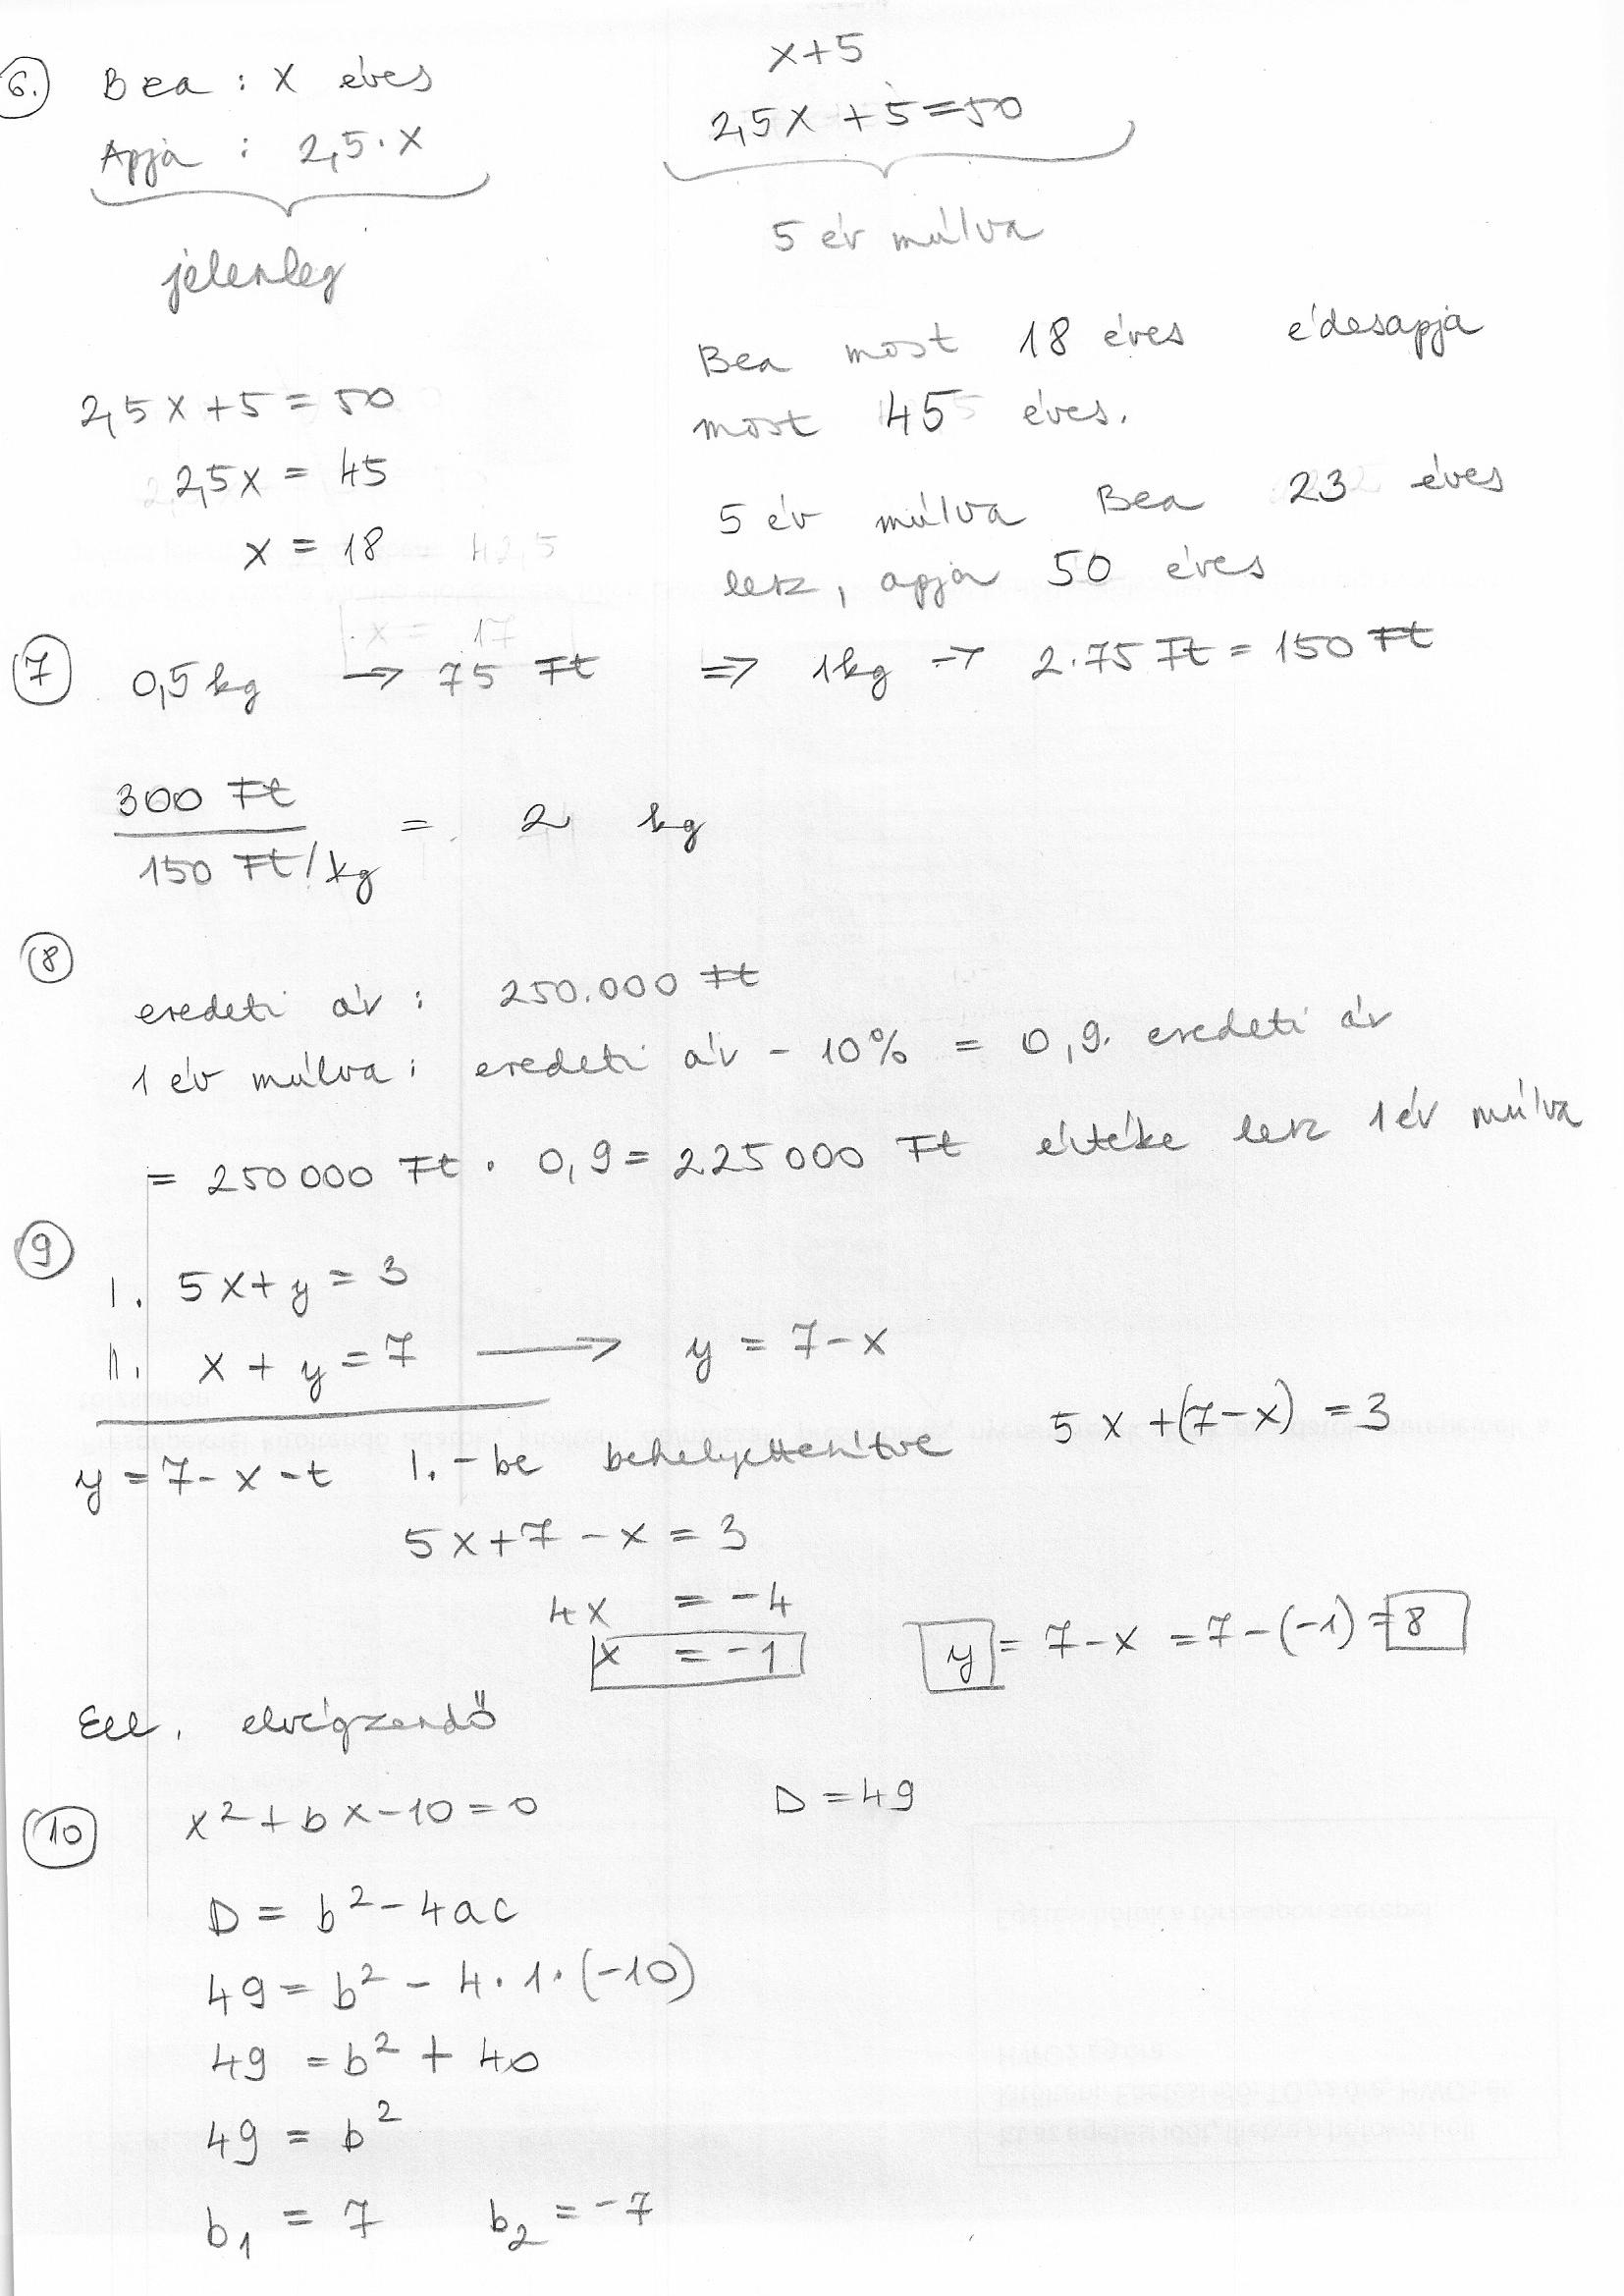 6. Bea : x éves
Apja : 2,5·x
jelenleg
x+5
2,5x + 5 = 50
5 év múlva
2,5x + 5 = 50
2,5x = 45
x = 18
Bea most 18 éves édesapja
most 45 éves.
5 év múlva Bea 23 éves
lesz, apja 50 éves
7 0,5 kg → 75 Ft ⇒ 1kg → 2·75 Ft = 150 Ft
300 Ft
150 Ft/kg
= 2 kg
8
eredeti ár : 250.000 Ft
1 év múlva : eredeti ár - 10% = 0,9· eredeti ár
= 250000 Ft · 0,9 = 225000 Ft értéke lesz 1 év múlva
9
I. 5x + y = 3
II. x + y = 7 → y = 7-x
y = 7-x-t I.-be behelyettesítve 5x + (7-x) = 3
5x + 7 - x = 3
4x = -4
x = -1 y = 7-x = 7-(-1) = 8
Ell. elvégzendő
10 x² + bx - 10 = 0 D = 49
D = b² - 4ac
49 = b² - 4·1·(-10)
49 = b² + 40
49 = b²
b₁ = 7 b₂ = -7